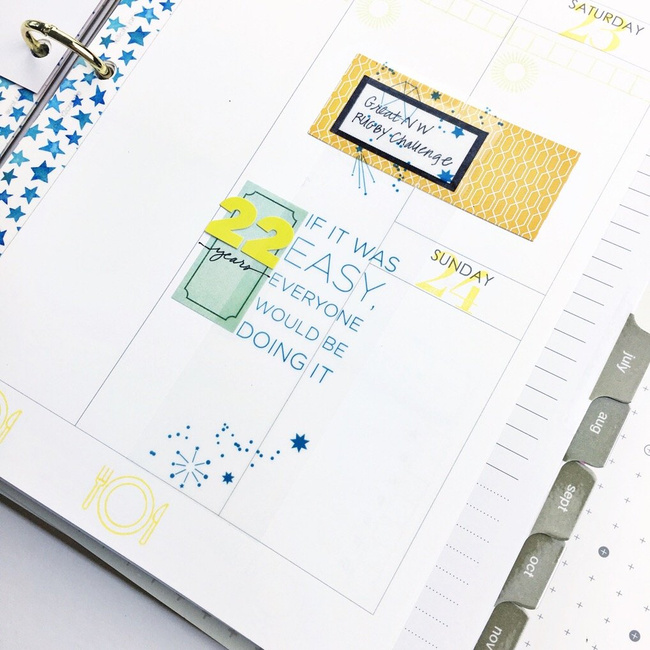 SATURDAY
23
Great NW
Rugby Challenge
22
years
IF IT WAS
EASY,
EVERYONE
WOULD BE
DOING IT
SUNDAY
24
july
aug
sept
oct
nov